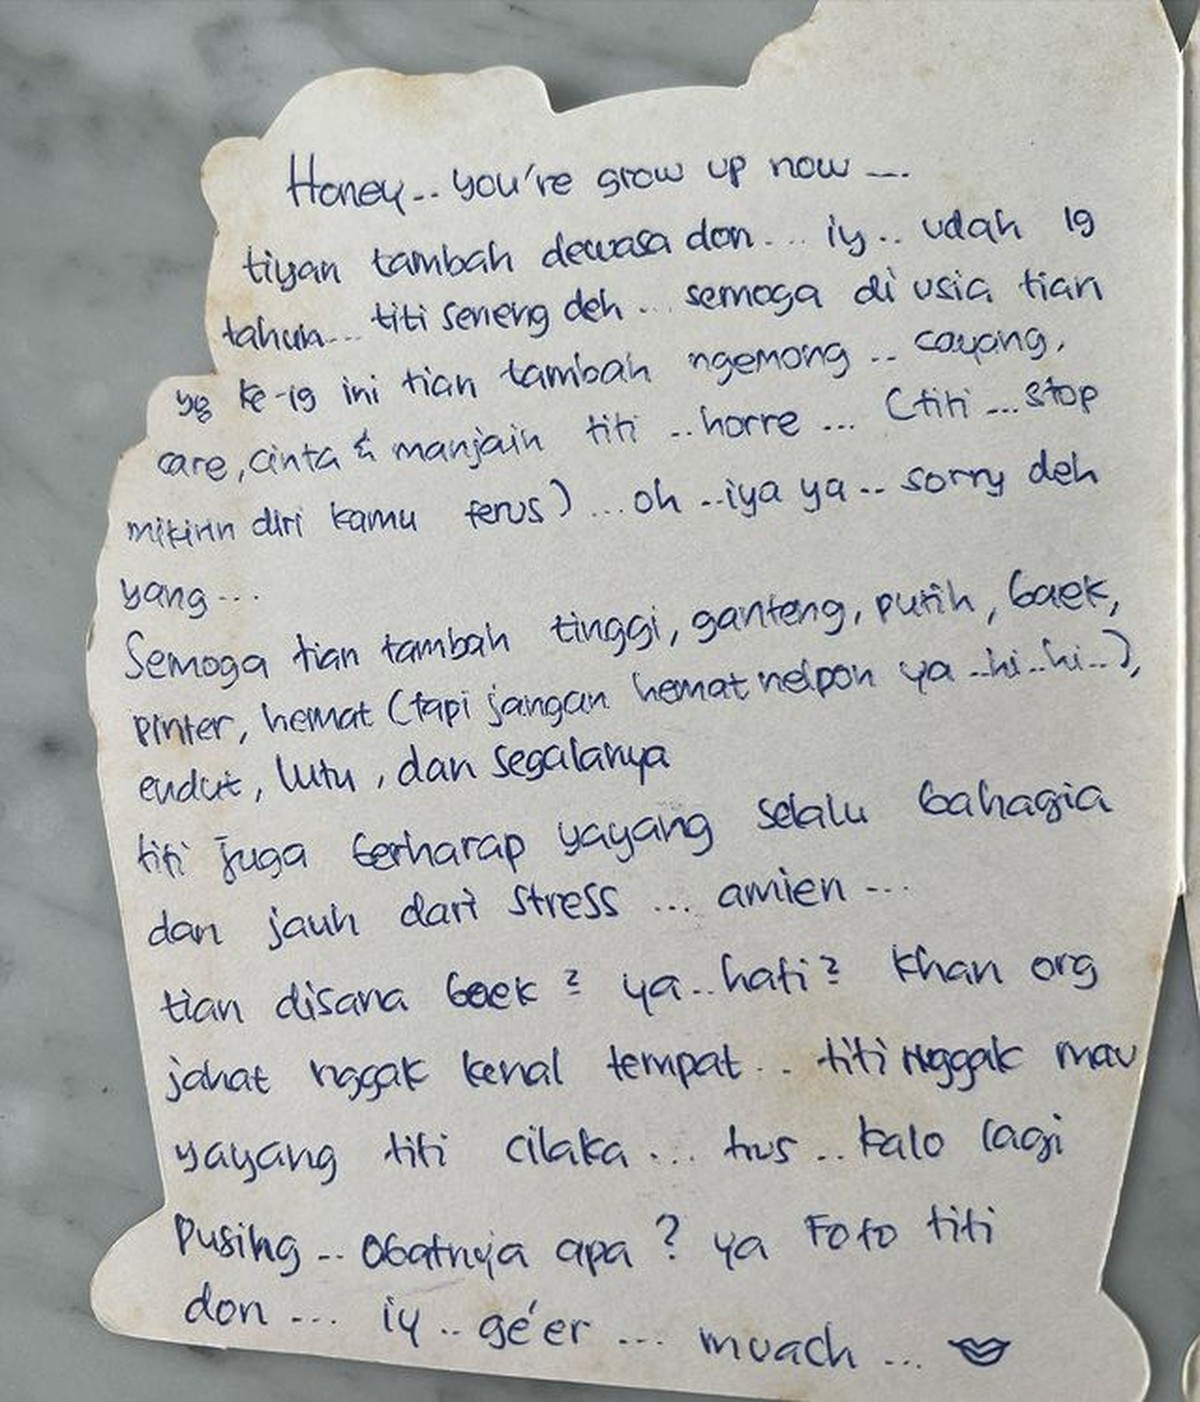 Honey.. you're grow up now ....
tiyan tambah dewasa don.... iy.. udah 19
tahun.... titi seneng deh... semoga di usia tian
yg ke-19 ini tian tambah ngemong .. cayang,
care, cinta & manjain titi ..horre ... (titi ... stop
mikirin diri kamu terus) ...oh ..iya ya.. sorry deh
yang ...
Semoga tian tambah tinggi, ganteng, putih, baek,
pinter, hemat (tapi jangan hemat nelpon ya ..hi..hi..),
endut, lutu, dan segalanya
titi juga berharap yayang selalu bahagia
dan jauh dari stress ... amien ...
tian disana baek ? ya..hati ? khan org
jahat nggak kenal tempat... titi nggak mau
yayang titi cilaka .... trus .. kalo lagi
pusing .. obatnya apa ? ya Foto titi
don .... iy .. gé'er .... muach ...